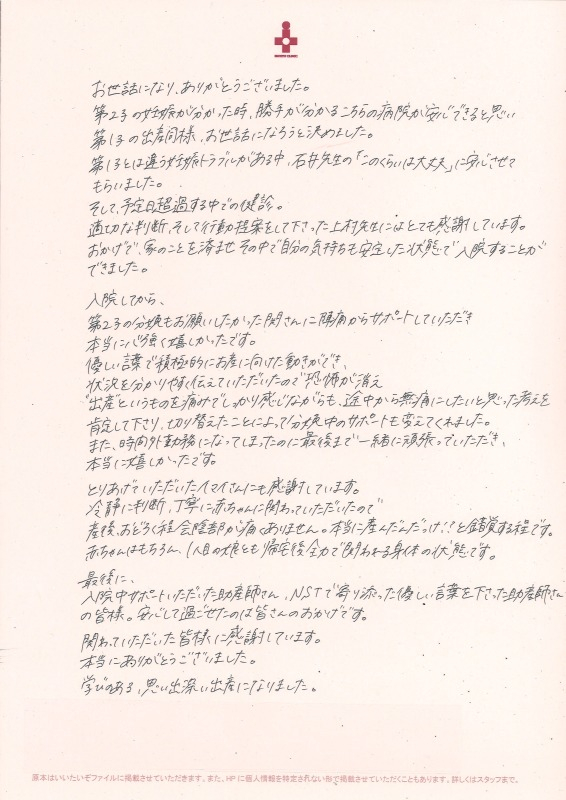 お世話になり、ありがとうございました。
第2子の妊娠が分かった時、勝手が分かるこちらの病院が安心できると思い
第1子の出産同様、お世話になろうと決めました。
第1子とは違う妊娠トラブルがある中、石井先生の「このくらいは大丈夫」に安心させて
もらいました。
そして、予定日超過する中での健診。
適切な判断、そして行動提案をして下さった上村先生にはとても感謝しています。
おかげで、家のことを済ませ その中で自分の気持ちも安定した状態で入院することが
できました。
入院してから、
第2子の分娩もお願いしたかった関さんに陣痛からサポートしていただき
本当に心強く嬉しかったです。
優しい言葉で積極的にお産に向けた動きができ、
状況を分かりやすく伝えていただいたので恐怖が消え
"出産"というものを痛みでしっかり感じながらも、途中から無痛にしたいと思った考えを
肯定して下さり、切り替えたことによって分娩中のサポートも変えてくれました。
また、時間外勤務になってしまったのに最後まで一緒に頑張っていただき、
本当に嬉しかったです。
とりあげていただいたイマイさんにも感謝しています。
冷静に判断、丁寧に赤ちゃんに関わっていただいたので
産後、おどろく程会陰部が痛くありません。本当に産んだんだっけ!?と錯覚する程です。
赤ちゃんはもちろん、1人目の娘とも帰宅後全力で関われる身体の状態です。
最後に、
入院中サポートいただいた助産師さん、NSTで寄り添った優しい言葉を下さった助産師さん
の皆様。安心して過ごせたのは皆さんのおかげです。
関わっていただいた皆様に感謝しています。
本当にありがとうございました。
学びのある、思い出深い出産になりました。
原本はいいたいぞファイルに掲載させていただきます。また、HPに個人情報を特定されない形で掲載させていただくこともあります。詳しくはスタッフまで。